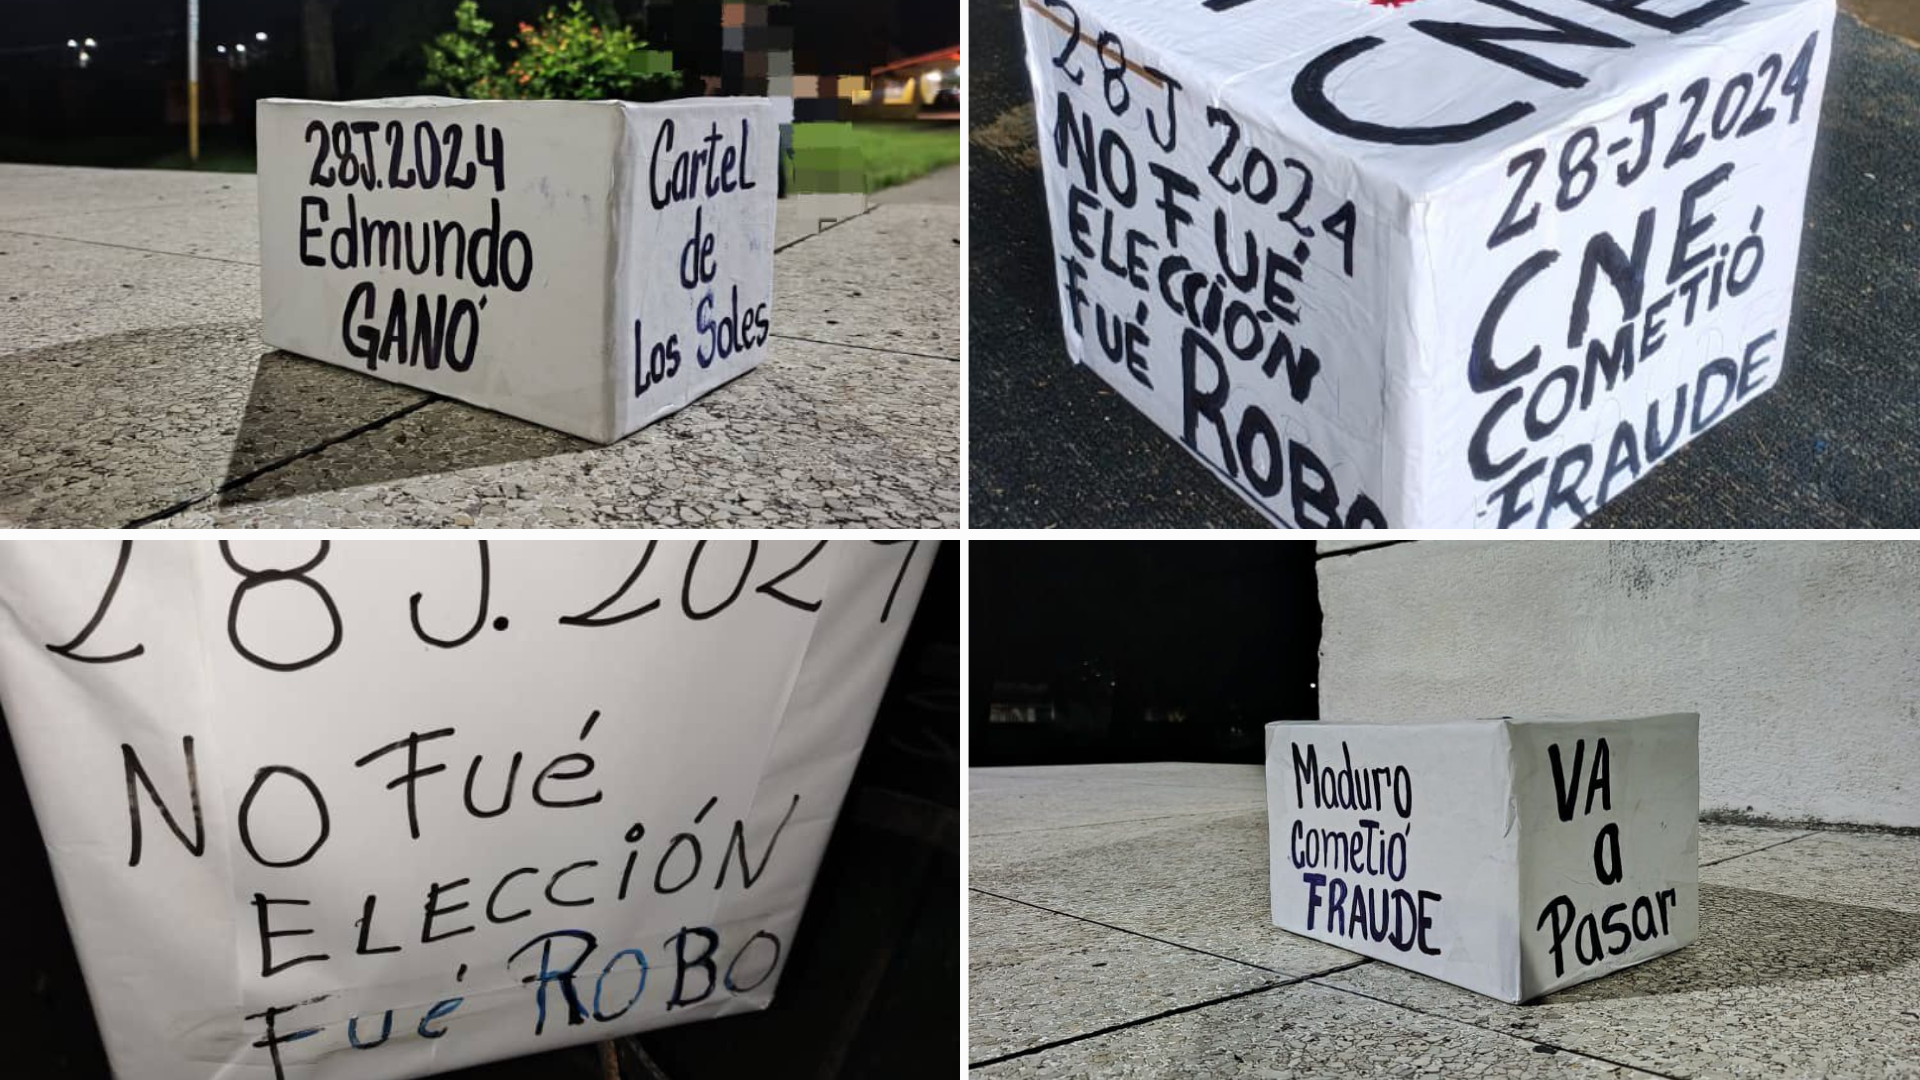 28J.2024
Edmundo
GANÓ
Cartel
de
Los Soles
CNE
28 J 2024
NO FUÉ
ELECCIÓN
FUÉ ROBO
28-J 2024
CNE
COMETIÓ
FRAUDE
28 J. 2024
NO FUé
ELECCIÓN
FUé ROBO
Maduro
Cometió
FRAUDE
VA
a
Pasar